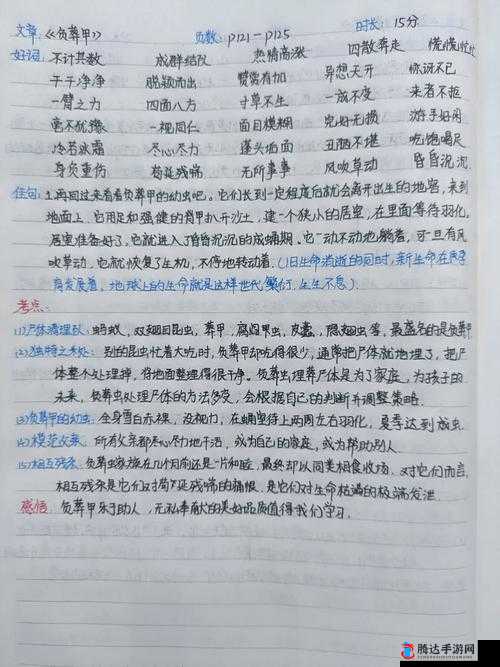 文章:《负葬甲》 页数:P121-P125 时长:15分
好词: 不计其数 成群结队 热情高涨 四散奔走 慌慌忙忙
干干净净 脱颖而出 赞赏有加 异想天开 惊讶不已
一臂之力 四面八方 寸草不生 一成不变 来者不拒
毫不犹豫 一视同仁 面目模糊 完好无损 游手好闲
冷若冰霜 尽心尽力 蓬头垢面 丑陋不堪 吃饱喝足
身负重伤 苟延残喘 无所事事 风吹草动 昏昏沉沉
佳句: 1.再回过来看看负葬甲的幼虫吧。它们长到一定程度后就会离开出生的地窖,来到
地面上,它用足和强健的背甲扒开沙土,建一个狭小的居室,在里面等待羽化。
居室准备好了,它就进入了昏昏沉沉的成蛹期。它一动不动地躺着,可一旦有风
吹草动,它就恢复了生机,不停地转动着。(旧生命流逝的同时,新生命在
发展着,地球上的生命就是这样世代繁衍、生生不息)
考点:
(1)尸体清理队:蚂蚁,双翅目昆虫,葬甲,腐阎甲虫,皮蠹,隐翅虫等,最著名的是负葬甲
(2)独特之处:别的昆虫忙着大吃时,负葬甲却吃得很少,通常把尸体就地埋了,把尸
体整个处理掉,将地面整理得很干净。负葬虫埋葬尸体是为了家庭,为孩子的
未来,负葬虫处理尸体的方法多变,会根据自己的判断来调整策略
(3)负葬甲的幼虫:全身雪白赤裸,没视力,在蛹里待上两周左右羽化,夏季达到成虫
(4)模范父亲:所有父亲都尽心尽力地干活,或为自己的家庭,或为帮助别人
(5)相互残杀:负葬虫家族在几个月前还是一片和睦,最终却以同类相食收场。对它们而言,
相互残杀是它们对苟延残喘的痛恨,是它们对生命枯竭的极端发泄
感悟:负葬甲乐于助人,无私奉献的美好品质值得我们学习。
腾达手游网